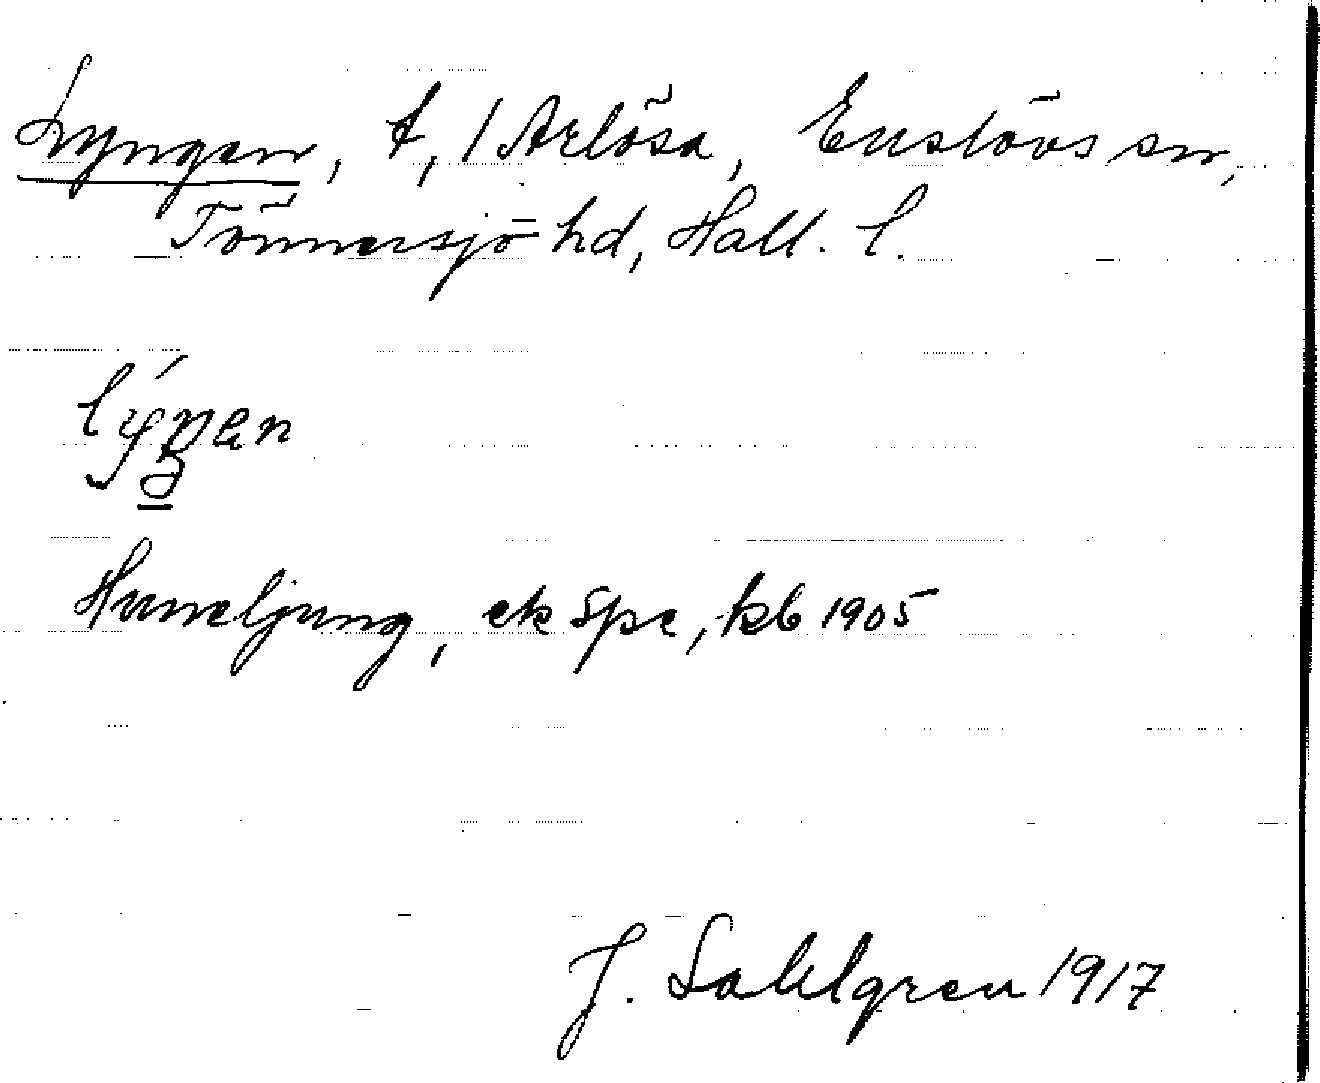 Lyngen, t, 1 Arlösa, Enslövs sn,
Tönnersjö hd, Hall. l.
Humeljung, ek Spe, kb 1905
J. Sahlgren 1917